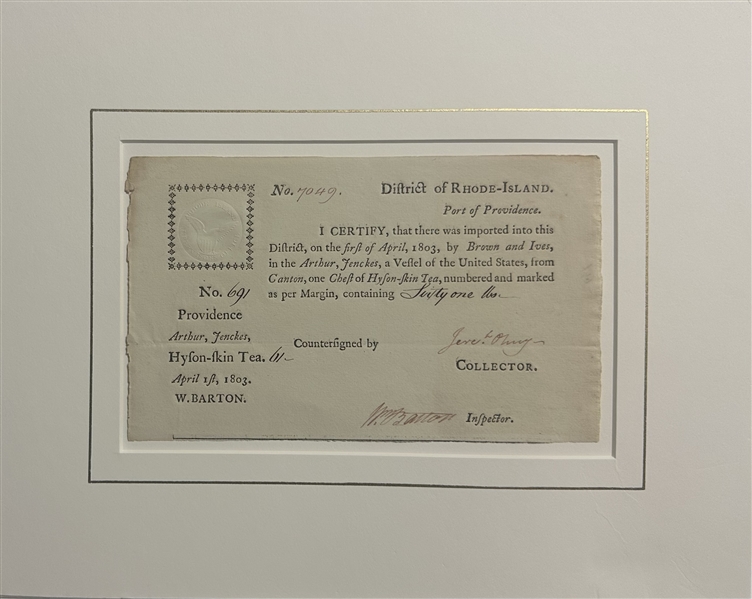 No. 7049. Diſtrict of RHODE-ISLAND.
Port of Providence.
I CERTIFY, that there was imported into this
Diſtrict, on the firſt of April, 1803, by Brown and Ives,
in the Arthur, Jenckes, a Veſſel of the United States, from
Canton, one Cheſt of Hyſon-ſkin Tea, numbered and marked
as per Margin, containing Sixty one lbs
No. 691
Providence
Arthur, Jenckes,
Hyſon-ſkin Tea. 61
April 1ſt, 1803.
W. BARTON.
Counterſigned by
Jereh. Olney
COLLECTOR.
Wm Barton Inſpector.